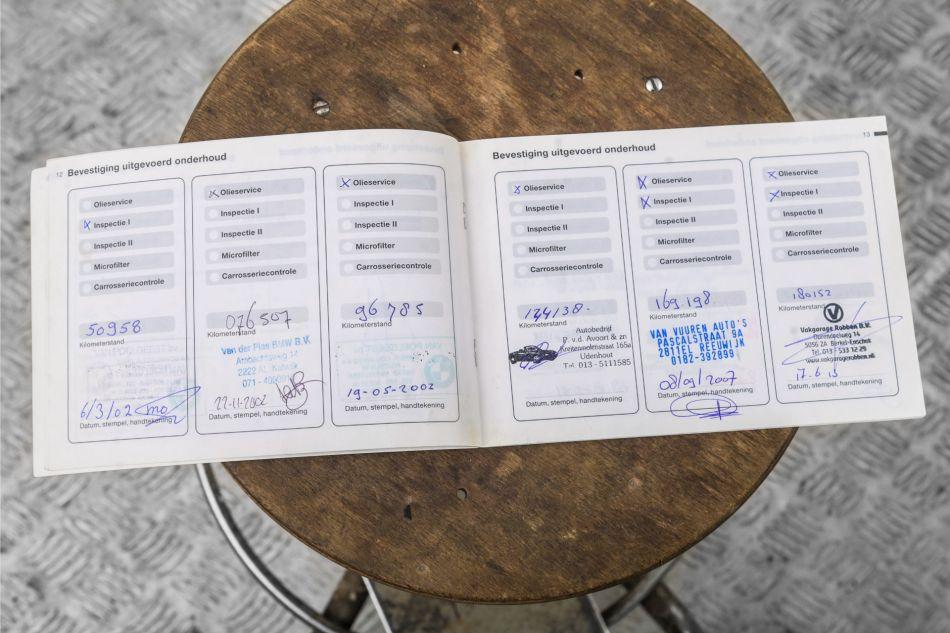 12 Bevestiging uitgevoerd onderhoud
Olieservice
x Inspectie I
Inspectie II
Microfilter
Carrosseriecontrole
50958
Kilometerstand
6/3/02
Datum, stempel, handtekening
x Olieservice
Inspectie I
Inspectie II
Microfilter
Carrosseriecontrole
076507
Kilometerstand
van der Plas BMW B.V.
Ambachtsweg 14
2222 AL Katwijk
071 -
22-11-2002
Datum, stempel, handtekening
x Olieservice
Inspectie I
Inspectie II
Microfilter
Carrosseriecontrole
96785
Kilometerstand
19-05-2002
Datum, stempel, handtekening
Bevestiging uitgevoerd onderhoud 13
x Olieservice
Inspectie I
Inspectie II
Microfilter
Carrosseriecontrole
144138.
Kilometerstand
Autobedrijf
P. v.d. Avoort & zn
Kreitenmolenstraat 165a
Udenhout
Tel. 013 - 5111585
Datum, stempel, handtekening
x Olieservice
x Inspectie I
Inspectie II
Microfilter
Carrosseriecontrole
169198
Kilometerstand
VAN VUUREN AUTO'S
PASCALSTRAAT 9A
2811EL REEUWIJK
0182-392899
08/09/2007
Datum, stempel, handtekening
x Olieservice
x Inspectie I
Inspectie II
Microfilter
Carrosseriecontrole
180152
Kilometerstand
Vakgarage Robben B.V.
14
5056 ZA Berkel-Enschot
Tel. 013 - 533 12 29
www.vakgaragerobben.nl
17.6.13
Datum, stempel, handtekening